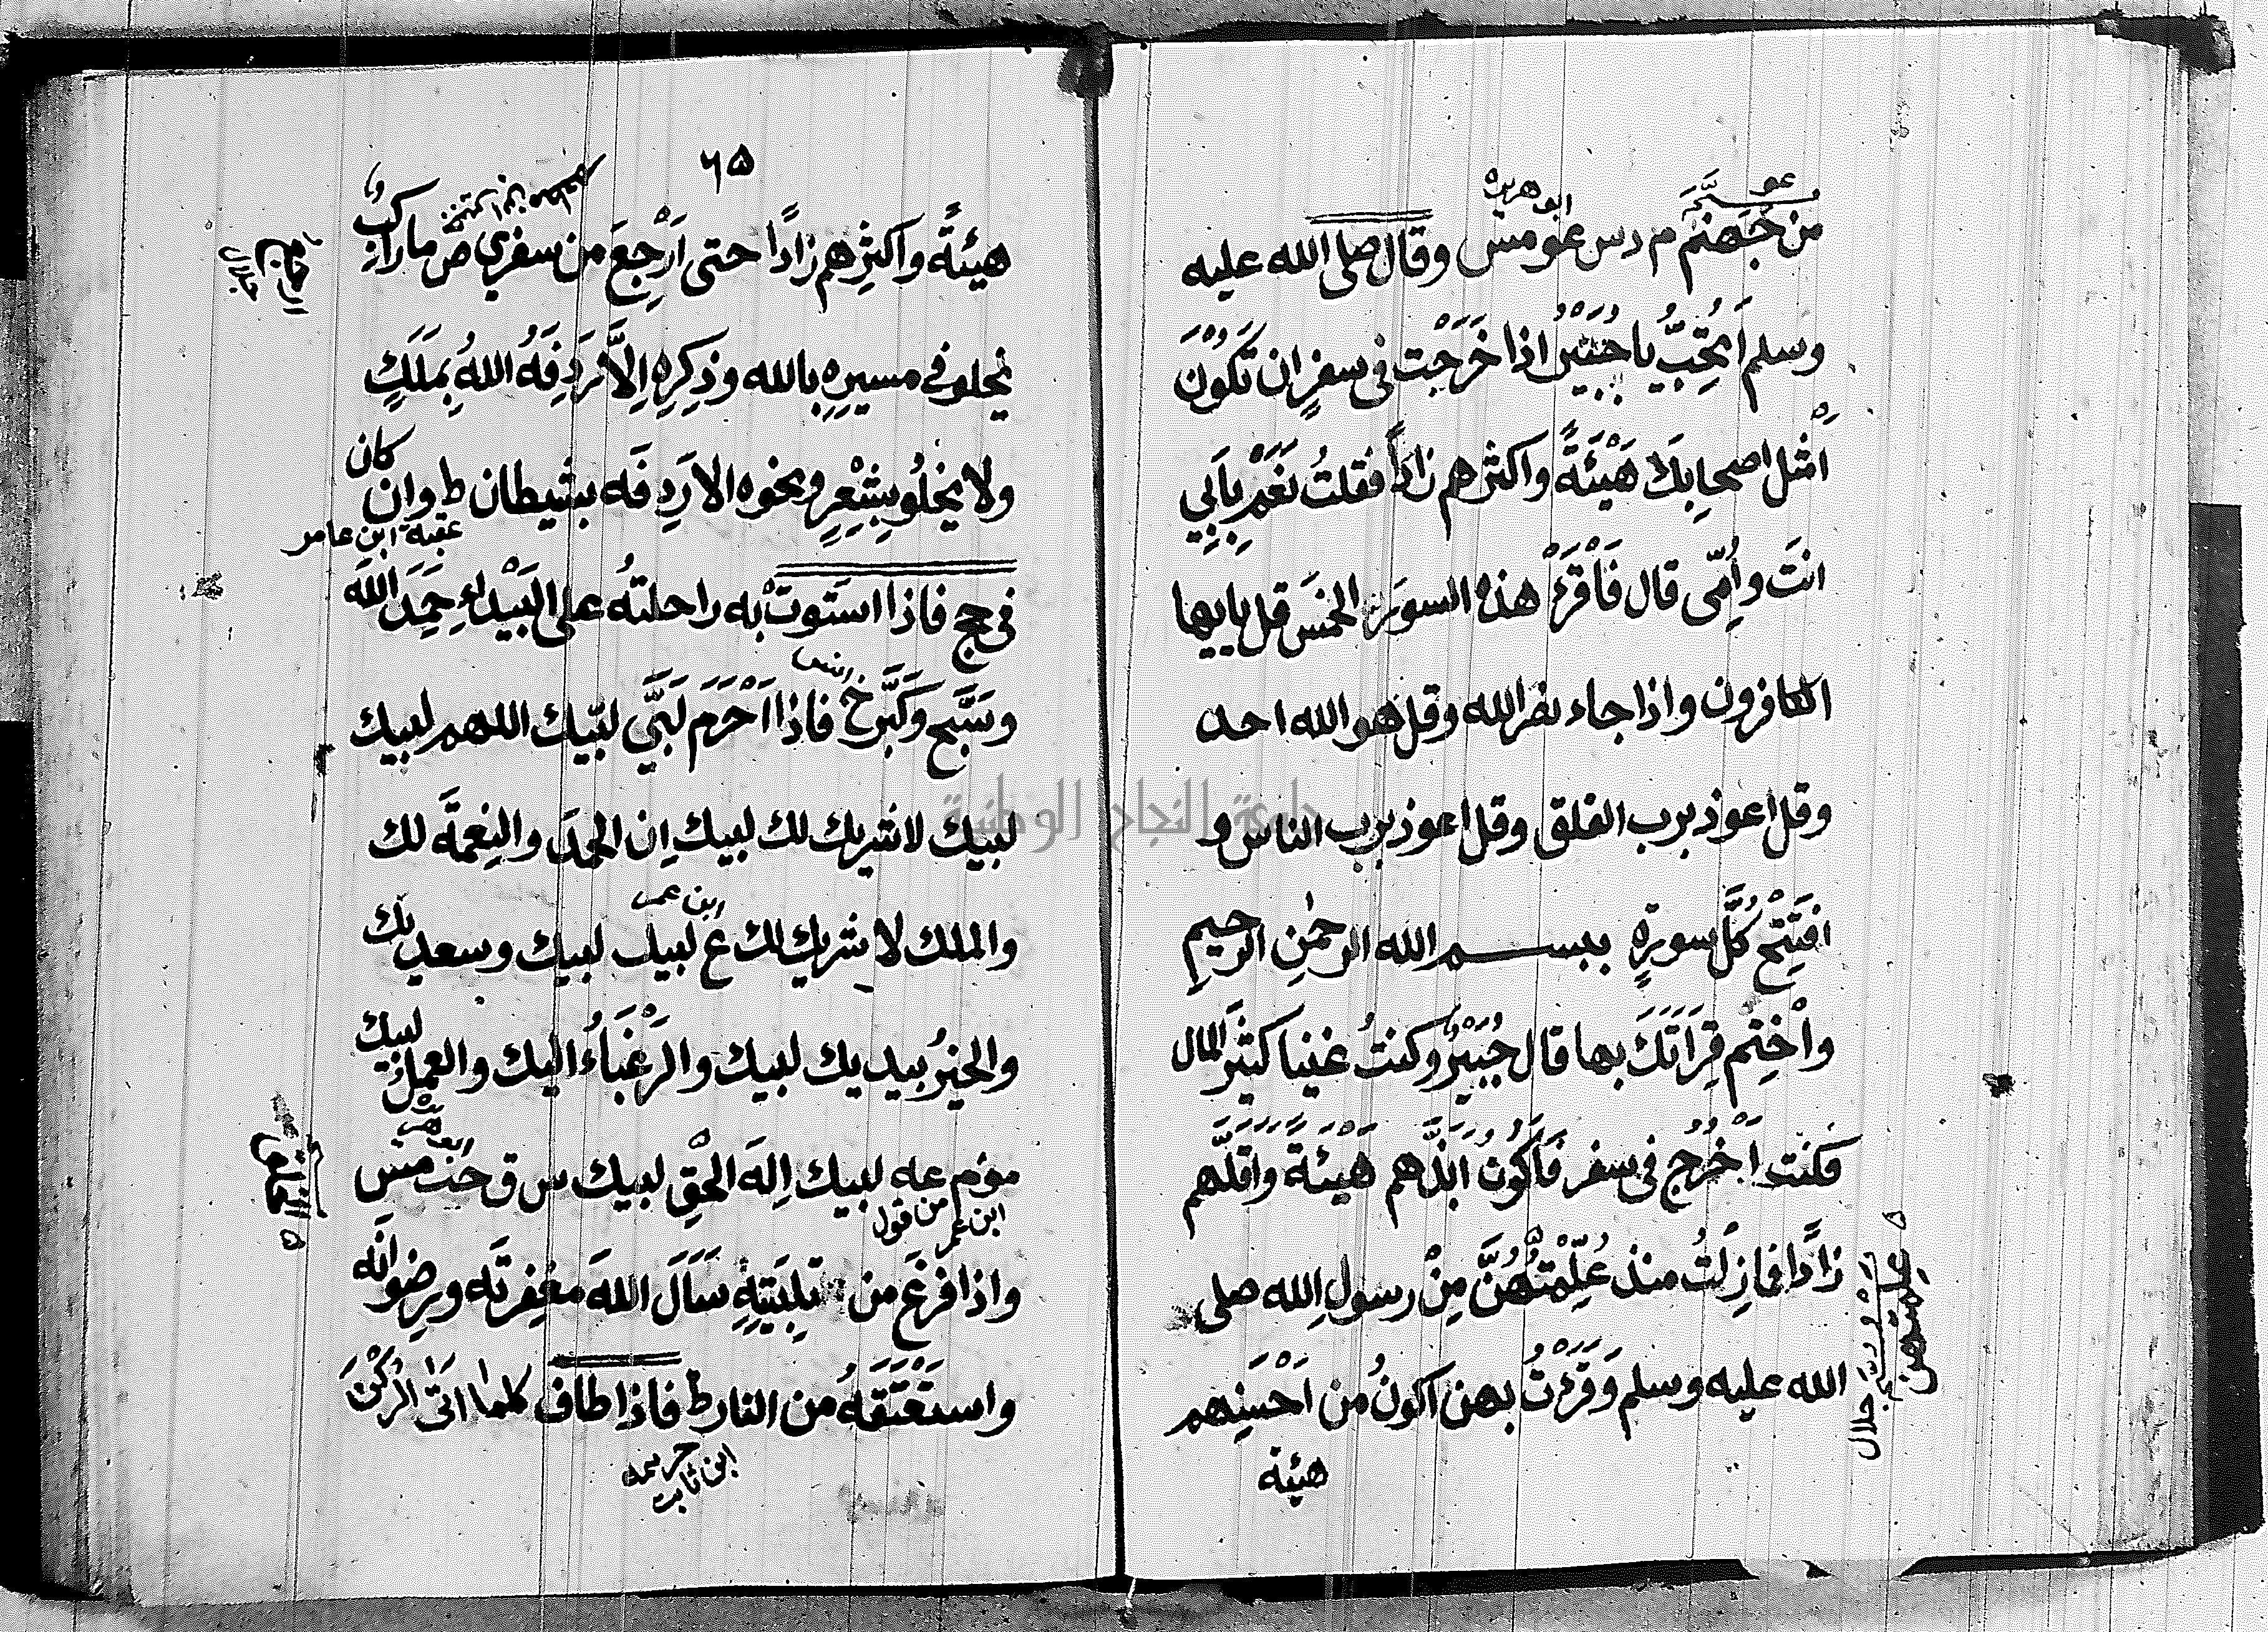 من جَهنم م دس عو مس وقال صلى الله عليه
ابو هريره
وسلم اَتُحِبُّ يا جُبَيْرُ اذا خَرَجْت فى سفرٍ ان تَكُوْنَ
اَمْثل اصحابِكَ هَيْئَةً واكثرهم زاداً فقلتُ نَعَمْ بِاَبِي
انتَ واُمّى قال فَاْقْرَءْ هذه السورَ الخمسَ قل يايها
الكافرون واذا جاء نصر الله وقل هو الله احد
وقل اعوذ برب الفلق وقل اعوذ برب الناس و
افتَتِحْ كُلَّ سورةٍ ببسم الله الرحمٰنِ الرحيمِ
واْخْتِم قِرَاَتَكَ بها قال جُبَيْرُ وكنتُ غنيا كثيرَ المال
فكنت اَخْرُجُ فى سفر فَاَكُوْنُ اَبَذَّهم هَيْئَةً وَاَقَلَّهم
زاداً فمازِلْتُ منذ عُلِّمْتُهُنَّ مِنْ رسولِ الله صلى
الله عليه وسلم وَقَرَءْتُ بهن اكونُ من اَحْسَنِهم
هيئة
علمتهن
جلال
٦٥
هيئةً واكثَرِهم زاداً حتى اَرْجِعَ من سفري ص ما راكب
يخلو فى مسيرِهِ بالله وذِكرِهِ اِلاَّ رَدِفَهُ اللهُ بمَلَكٍ
ولا يخلُو بِشِعْرٍ ونحوه الا رَدِفَه بشيطان ط وان كان
عقبة ابن عامر
فى حج فاذا استَوتْ به راحلتُه على البَيْداءِ حَمِدَ اللهَ
وسَبَّحَ وكَبَّرَ خ فاذا اَحْرَمَ لَبَّي لبّيك اللهم لبيك
انس
لبيك لا شريك لك لبيك اِن الحمدَ والنِعمَةَ لك
والملك لا شريك لك ع لبيك لبيك وسعديك
ابن عمر
والخيرُ بيديك لبيك والرَغْبَاءُ اليك والعملُ لبيك
مو م عه لبيك اِلهَ الحقِ لبيك س ق حب مس
ابن عمر من قول
واذا فرغَ من تلبيَتِهِ سَاَلَ اللهَ مغفِرتَه ورِضوانَه
واستَعْتَقَهُ من النار ط فاذا طاف كلما اتَى الرُّكْنَ
ابن ثابت